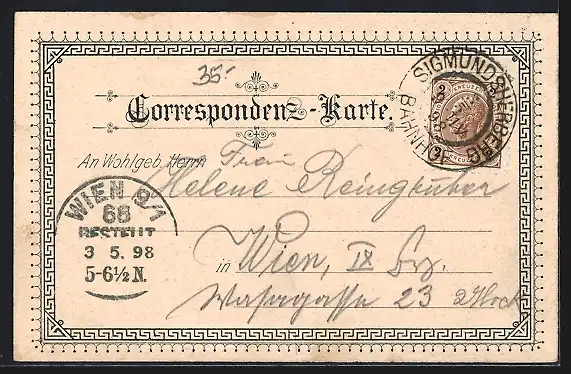 35-
Correspondenz-Karte.
SIGMUNDSHERBERG
BAHNHOF
2 KREUZER 2
An Wohlgeb. Herrn Frau
Helene Reingruber
WIEN 9/1
66
BESTELLT
3 5. 98
5-6½N.
in Wien, IX Bez.
Wasagasse 23 2